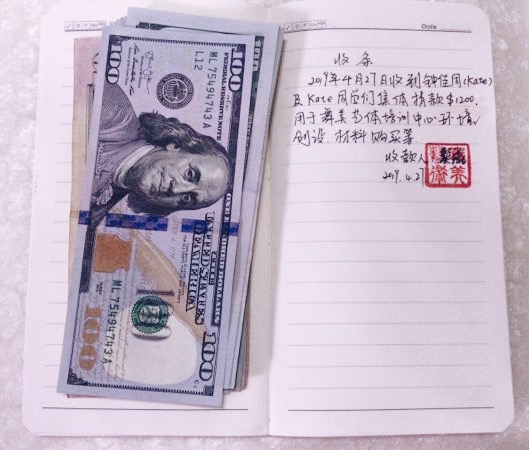 Date
收条
2019年4月27日收到钟佳(Kate)
及Kate同学们集体捐款$1200.
用于舞美艺体培训中心环境
创设、材料购买等
收款人
2019.4.27
美
100
ML 75494743 A
L12
FEDERAL RESERVE NOTE
THE UNITED STATES
OF AMERICA
100
ML 75494743 A
100
100